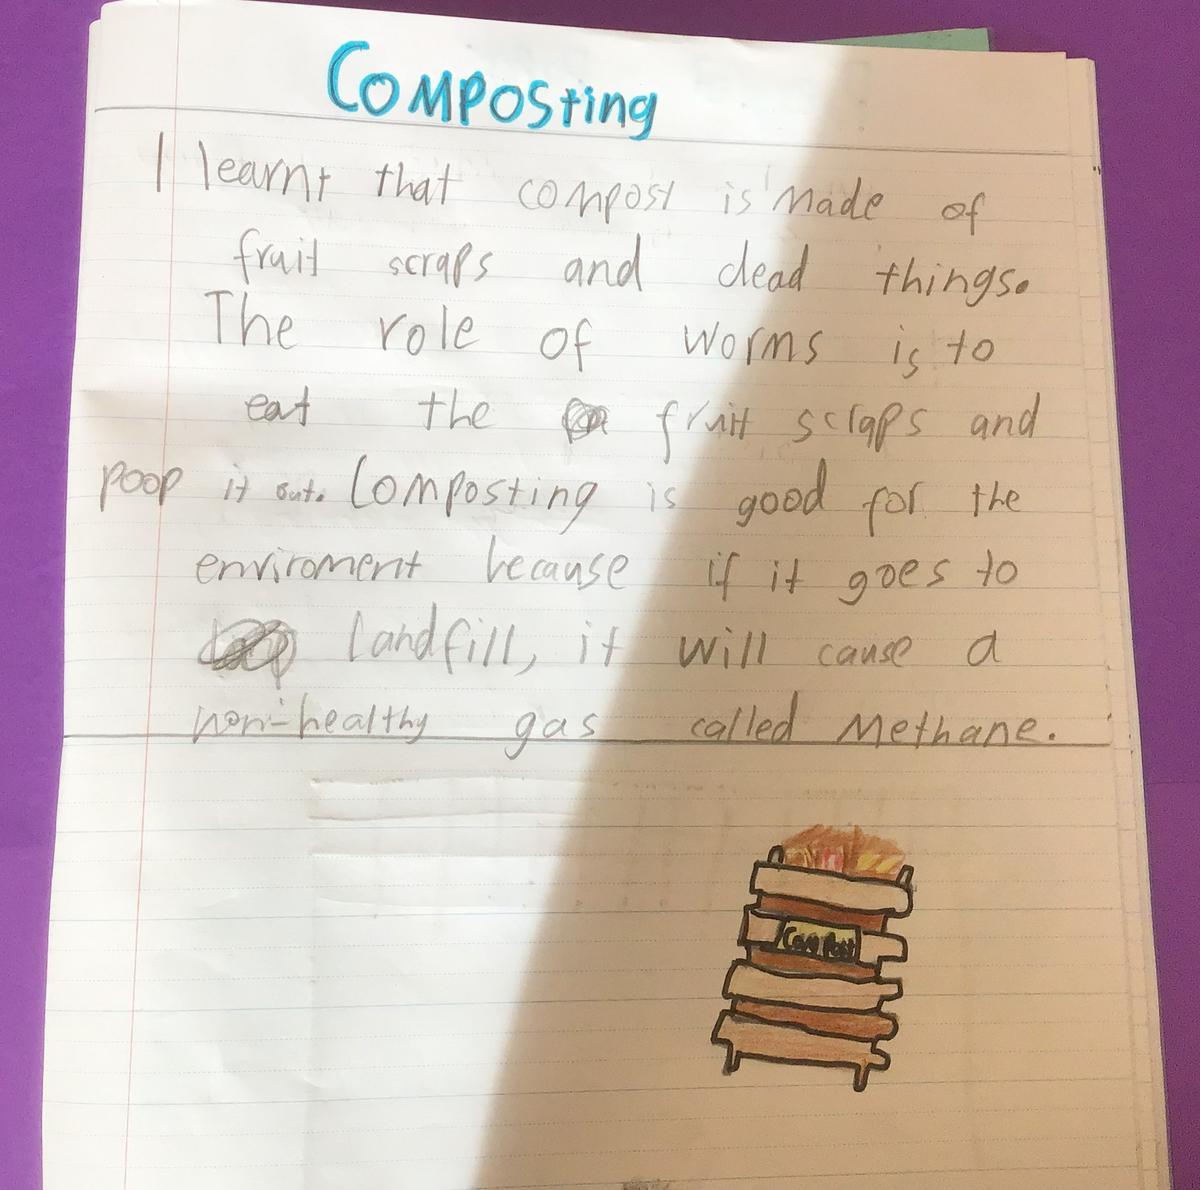 Composting
I learnt that compost is made of
fruit scraps and dead things.
The role of worms is to
eat the fruit scraps and
poop it out. Composting is good for the
enviroment because if it goes to
Landfill, it will cause a
non-healthy gas called Methane.
Compost